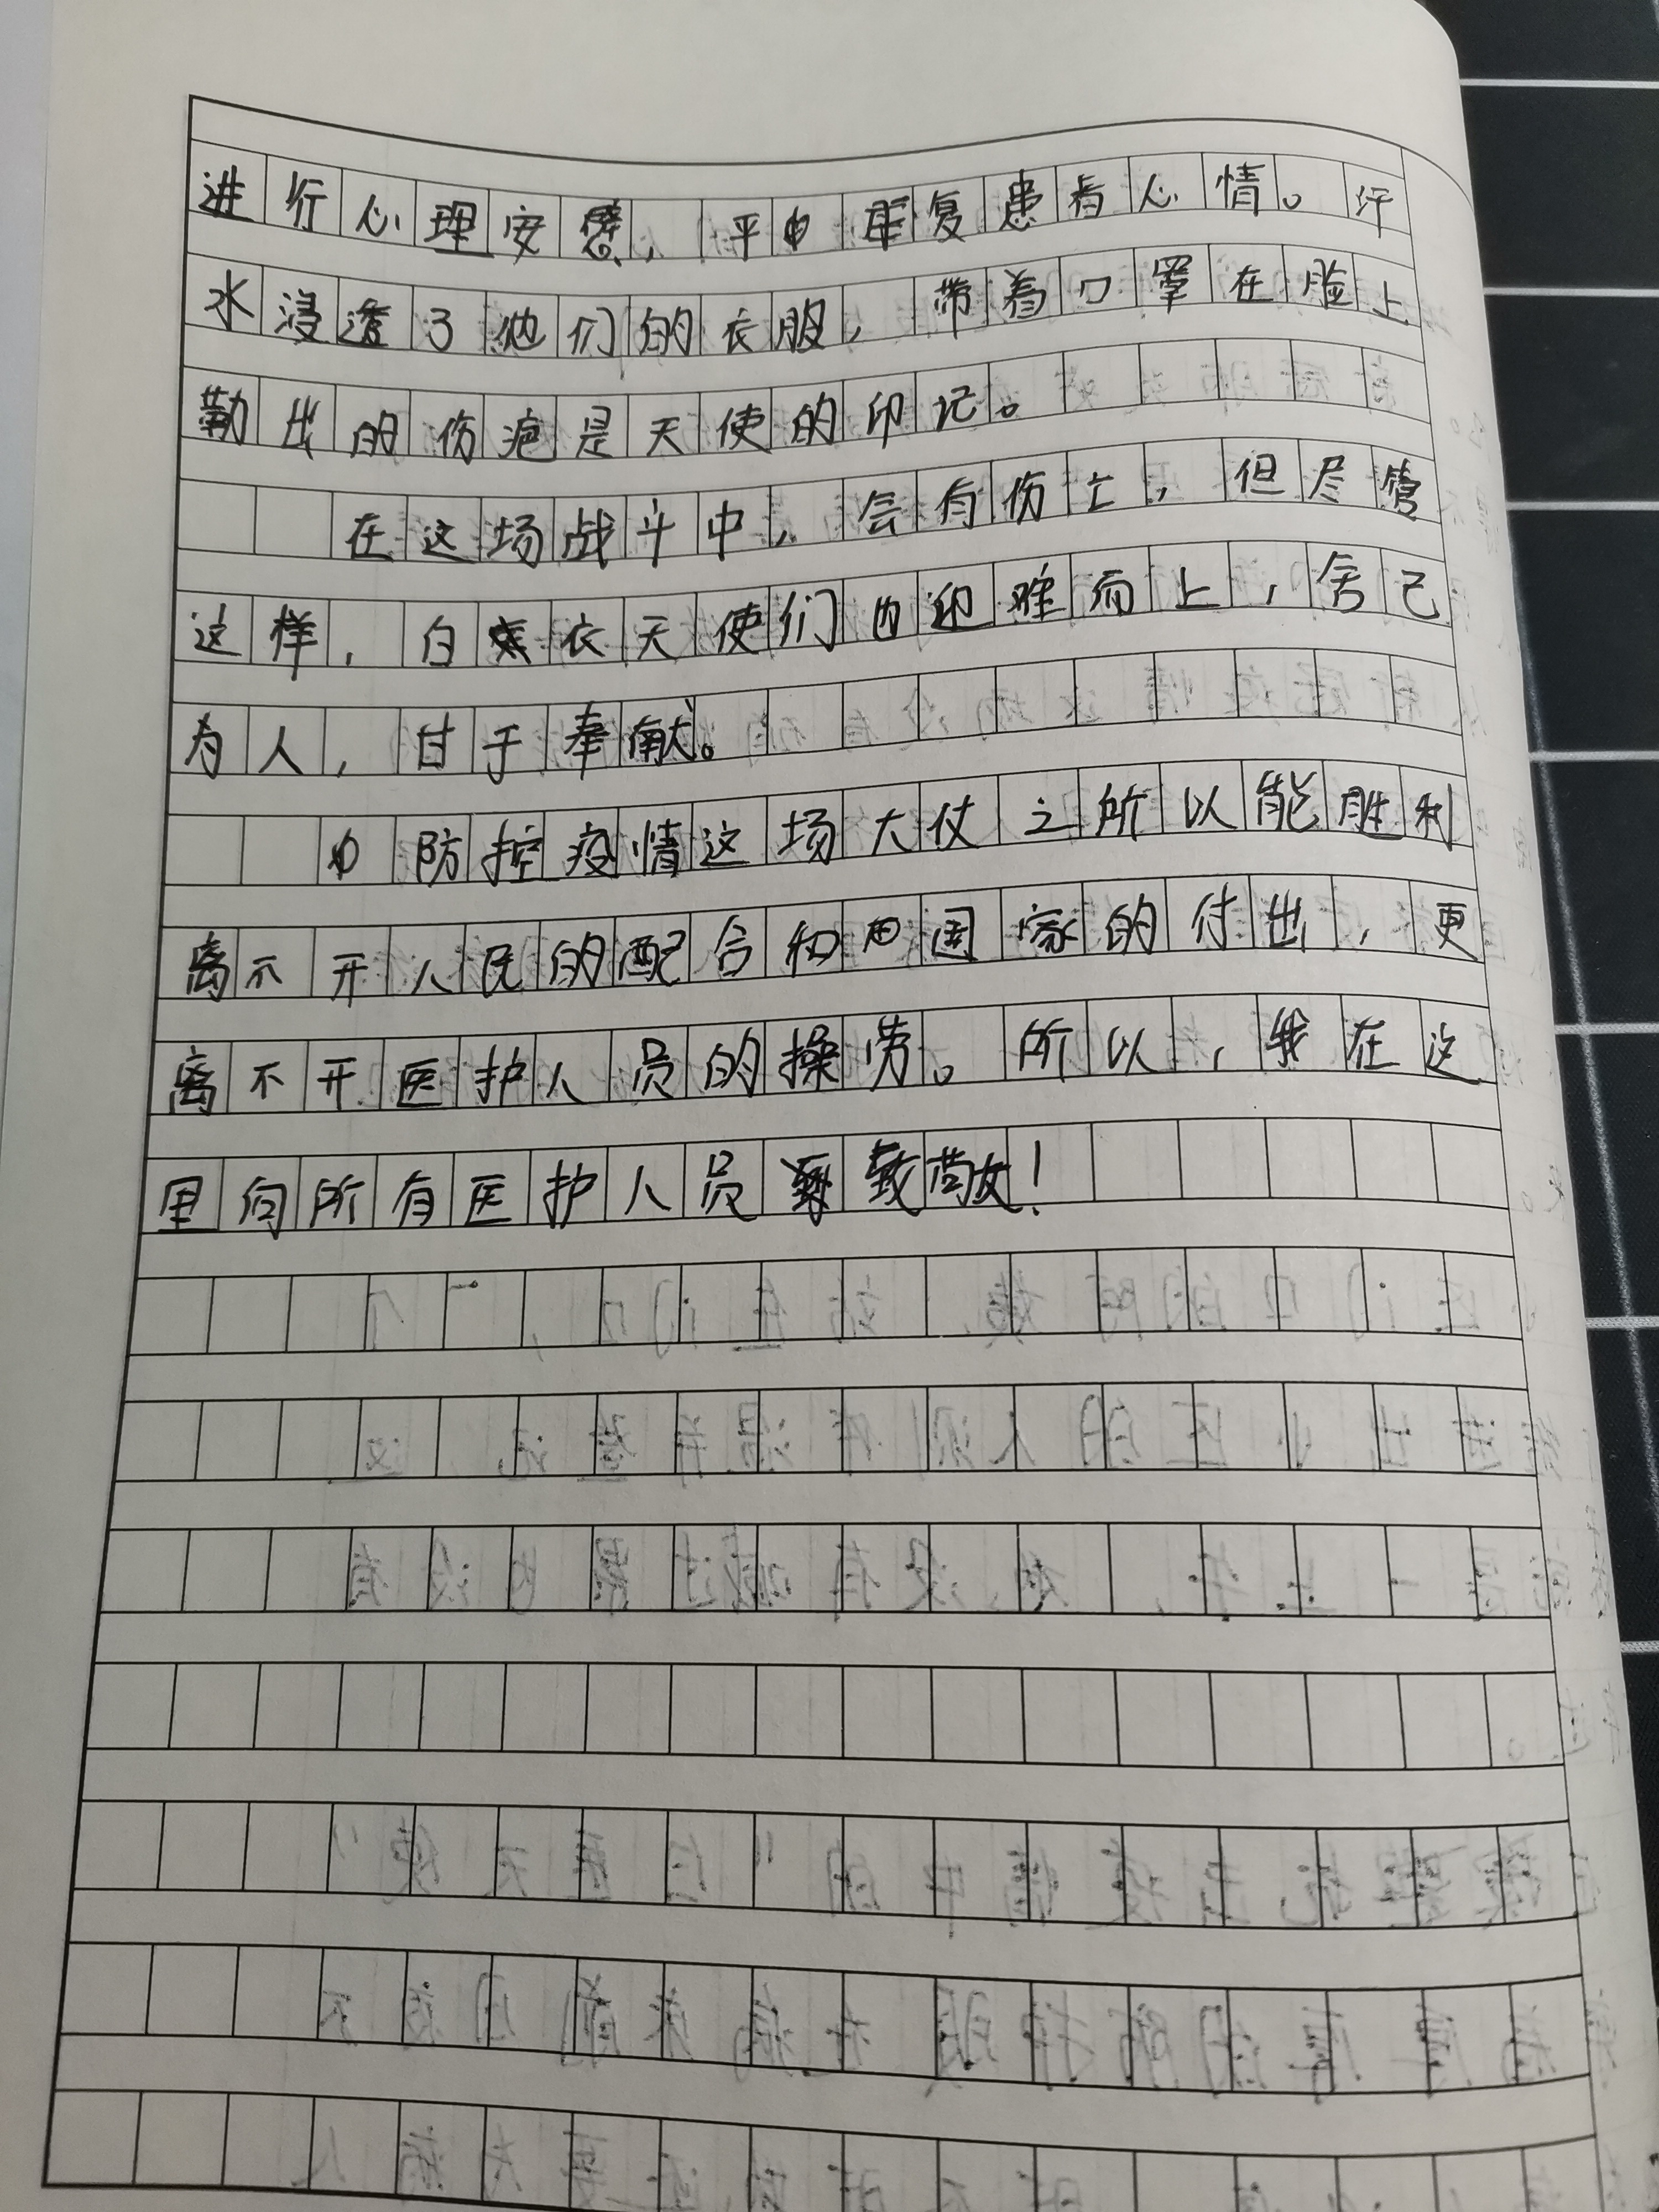 进行心理安慰,平复患者心情。汗
水浸透了他们的衣服,带着口罩在脸上
勒出的伤疤是天使的印记。
在这场战斗中,会有伤亡,但尽管
这样,白衣天使们也迎难而上,舍己
为人,甘于奉献。
防控疫情这场大仗之所以能胜利
离不开人民的配合和国家的付出,更
离不开医护人员的操劳。所以,我在这
里向所有医护人员致敬!